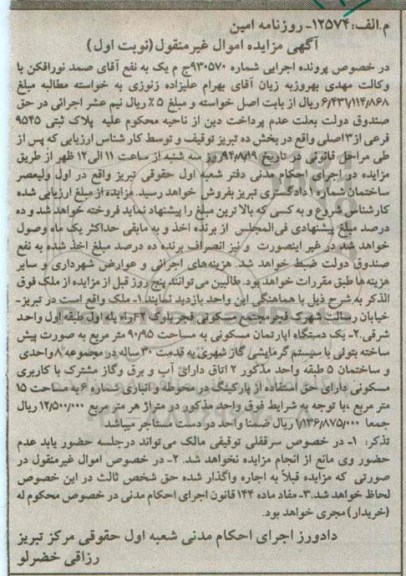 م.الف: ۱۲۵۷۴- روزنامه امین
آگهی مزایده اموال غیرمنقول(نوبت اول)
در خصوص پرونده اجرایی شماره ۹۳۰۵۷۰ج م یک به نفع آقای صمد نورافکن با
وکالت مهدی بهروزیه زیان آقای بهرام علیزاده زنوزی به خواسته مطالبه مبلغ
۶/۴۳۶/۱۱۴/۸۶۸ ریال از بابت اصل خواسته و مبلغ ۵٪ ریال نیم عشر اجرائی در حق
صندوق دولت بعلت عدم پرداخت دین از ناحیه محکوم علیه پلاک ثبتی ۹۵۴۵
فرعی از ۳ اصلی واقع در بخش ده تبریز توقیف و توسط کارشناس ارزیابی که پس از
طی مراحل قانونی در تاریخ ۹۴/۸/۱۹ روز سه شنبه از ساعت ۱۱ الی ۱۲ ظهر از طریق
مزایده در اجرای احکام مدنی دفتر شعبه اول حقوقی تبریز واقع در اول ولیعصر
ساختمان شماره ۱ دادگستری تبریز بفروش خواهد رسید. مزایده از مبلغ ارزیابی شده
کارشناس شروع و به کسی که بالاترین مبلغ را پیشنهاد نماید فروخته خواهد شد و ده
درصد مبلغ پیشنهادی فی المجلس از برنده اخذ و به مابقی حداکثر یک ماه وصول
خواهد شد در غیر اینصورت و نیز انصراف برنده ده درصد مبلغ اخذ شده به نفع
صندوق دولت ضبط خواهد شد. هزینه‌های اجرائی و عوارض شهرداری و سایر
هزینه‌ها طبق مقررات خواهد بود. طالبین می توانند پنج روز قبل از مزایده از ملک فوق
الذکر به شرح ذیل با هماهنگی این واحد بازدید نمایند.۱- ملک واقع است در تبریز-
خیابان رسالت شهرک فجر مجتمع مسکونی فجر بلوک ۲- راه پله اول طبقه اول واحد
شرقی.۲- یک دستگاه آپارتمان مسکونی به مساحت ۹۰/۹۵ متر مربع به صورت پیش
ساخته بتونی با سیستم گرمایشی گاز شهری به قدمت ۳۰ ساله در مجموعه ۸ واحدی
و ساختمان ۵ طبقه واحد مذکور ۲ اتاق دارای آب و برق وگاز مشترک با کاربری
مسکونی دارای حق استفاده از پارکینگ در محوطه و انباری شماره ۶ به مساحت ۱۵
متر مربع ،با توجه به شرایط فوق واحد مذکور در متراژ هر متر مربع ۱۲/۵۰۰/۰۰۰ ریال
جمعا ۱/۱۳۶/۸۷۵/۰۰۰ ریال ضمنا واحد در دست مستأجر میباشد
تذکر: ۱- در خصوص سرقفلی توقیفی مالک می تواند درجلسه حضور یابد عدم
حضور وی مانع از انجام مزایده نخواهد شد. ۲- در خصوص اموال غیرمنقول در
صورتی که مزایده قبلاً به اجاره واگذار شده حق شخص ثالث در این خصوص
لحاظ خواهد شد.۳- مفاد ماده ۱۴۴ قانون اجرای احکام مدنی در خصوص محکوم له
(خریدار) مجری خواهد بود.
دادورز اجرای احکام مدنی شعبه اول حقوقی مرکز تبریز
رزاقی خضرلو